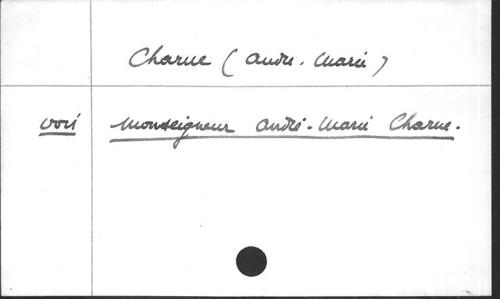 Charue (André-Marie)
voir Monseigneur André-Marie Charue.